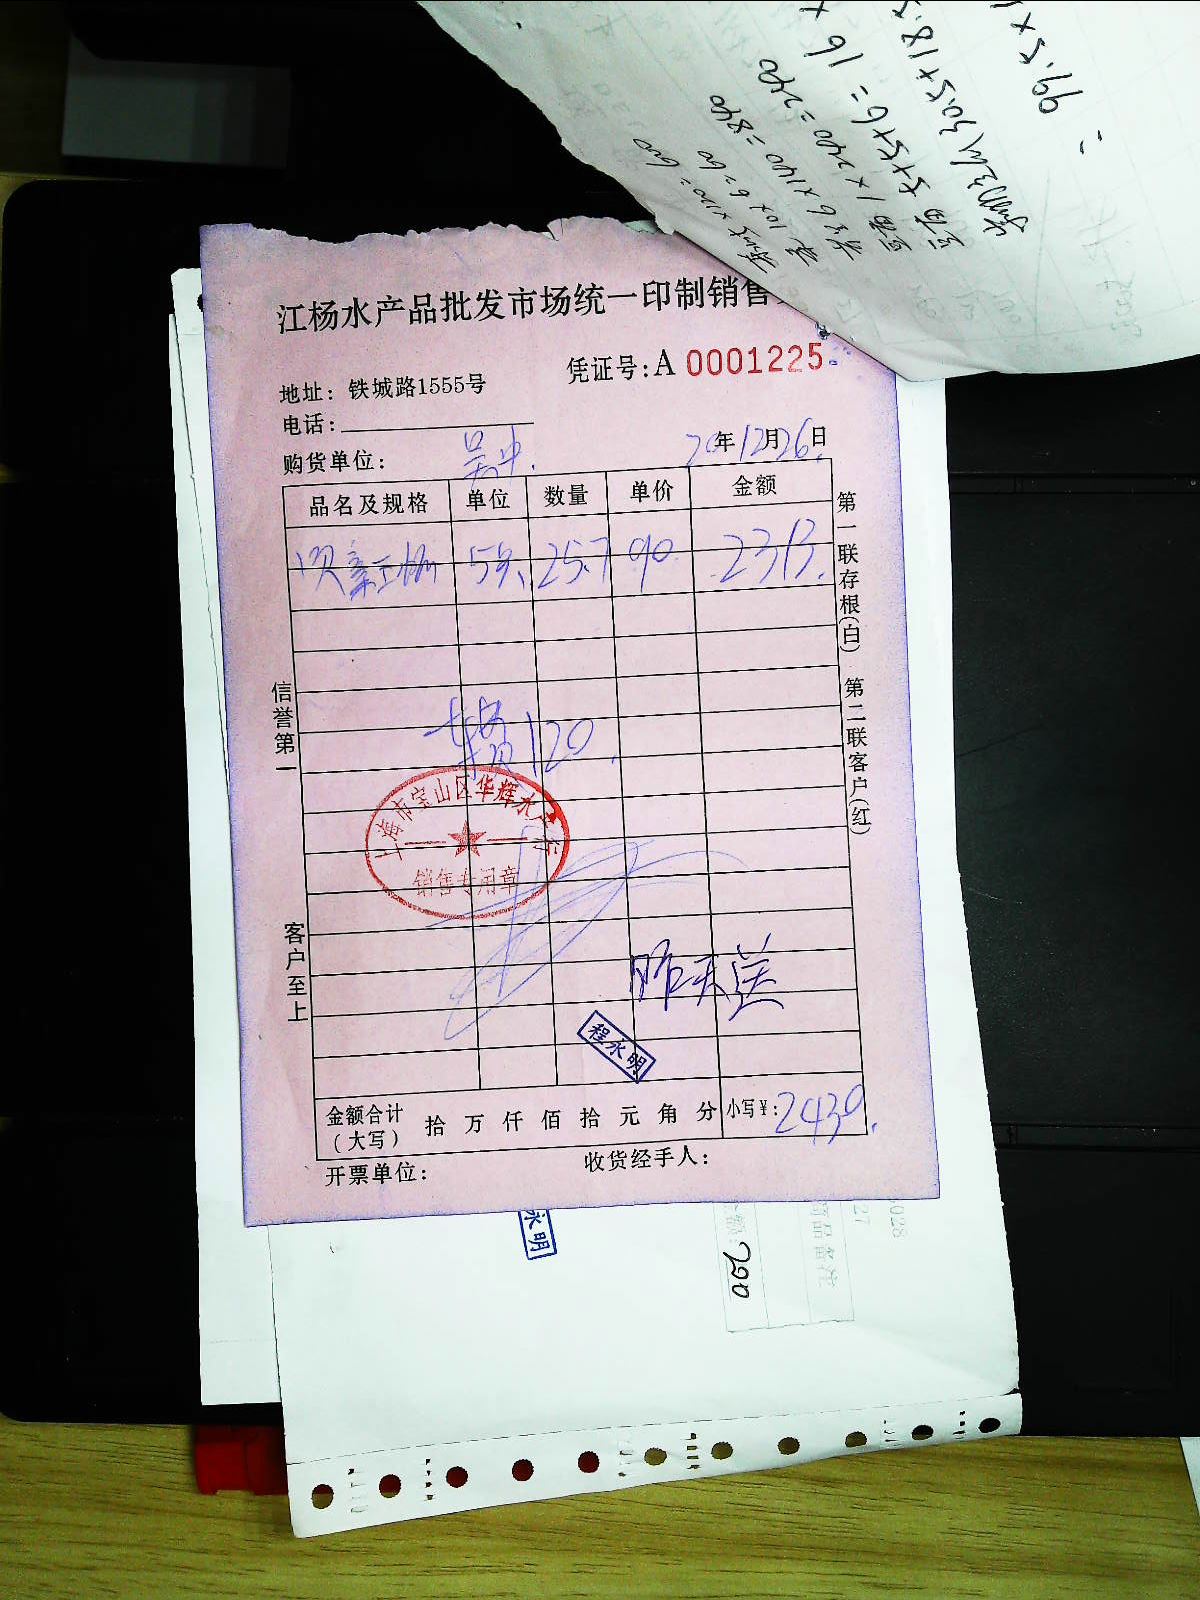 江杨水产品批发市场统一印制销售
凭证号:A 0001225
地址: 铁城路1555号
电话:
购货单位: 吴中
20年12月26日
品名及规格 单位 数量 单价 金额
5头 25.7 90 2313.
车费 120.
上海市宝山区华辉水产行
销售专用章
昨天送
程永明
金额合计(大写) 拾 万 仟 佰 拾 元 角 分 小写¥: 2430.
开票单位: 收货经手人:
信誉第一
客户至上
第一联存根(白) 第二联客户(红)
永明
200
商品备注
27
028
= 99.5×1
30.5+18.5
5×5×6= 16 ×
1×240=240
6×140=840
10×6=60